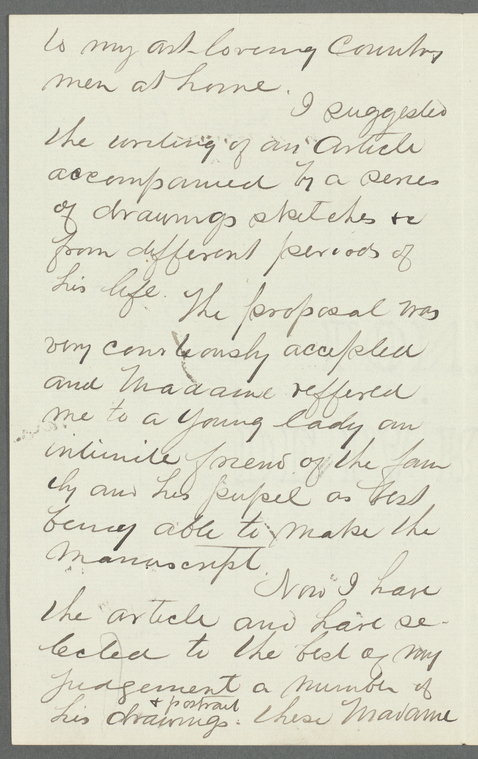 to my art-loving Country
men at home.
I suggested
the writing of an Article
accompanied by a series
of drawings sketches &c
from different periods of
his life. The proposal was
very courteously accepted
and Madame reffered
me to a young lady an
intimite friend of the fam
ily and his pupil as best
being able to make the
manuscript.
Now I have
the article and have se-
lected to the best of my
judgement a number of
& portrait
his drawings. these Madame